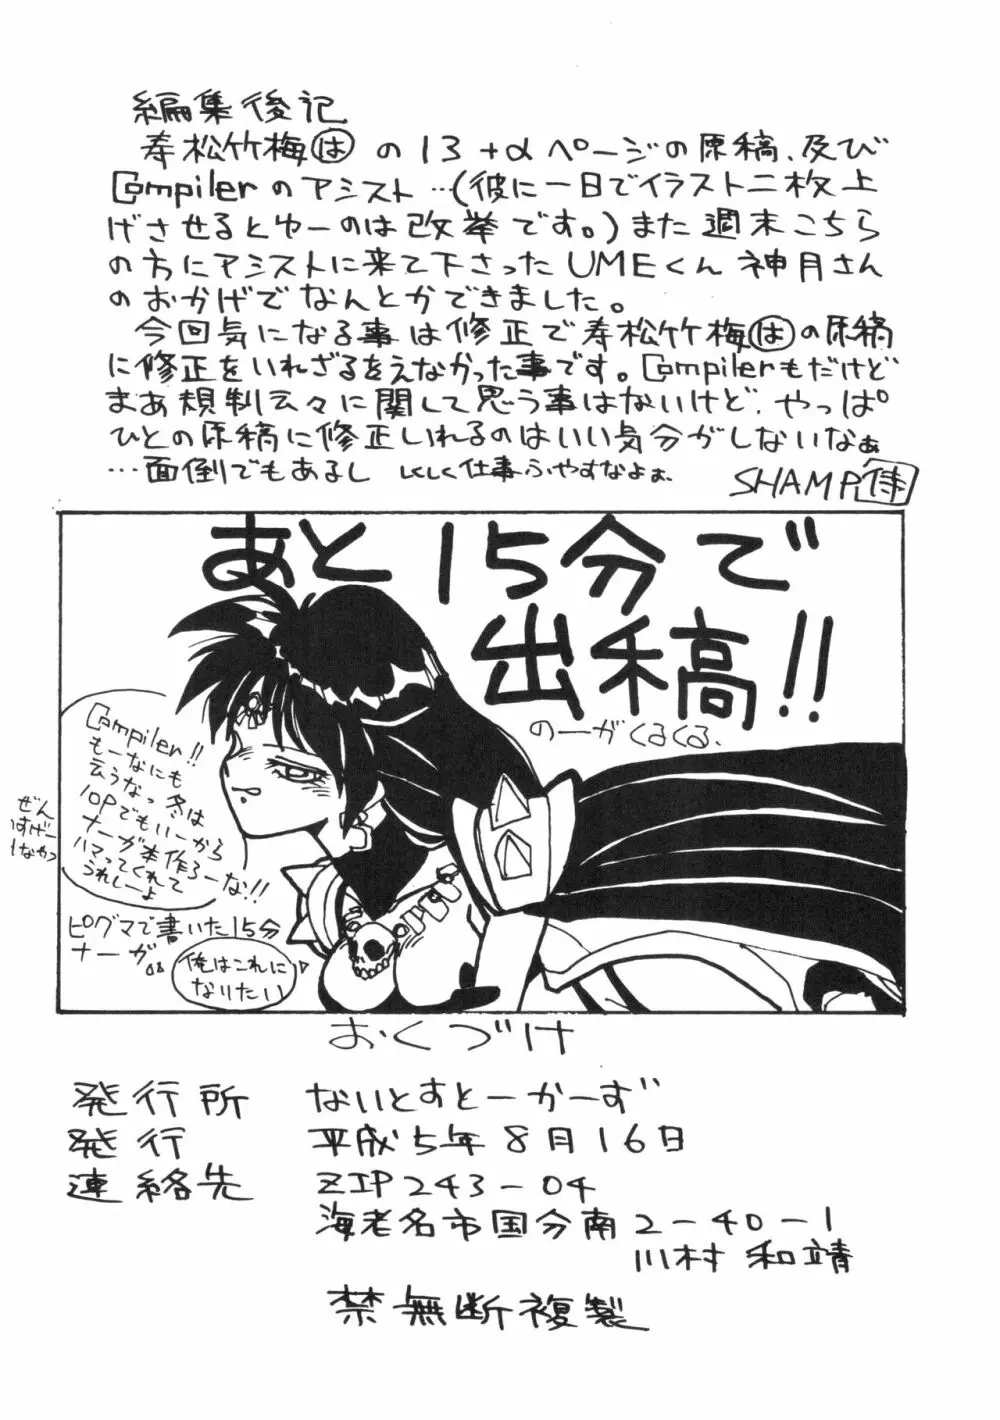 編集後記
寿松竹梅はの13+αページの原稿、及び
Compilerのアシスト…(彼に一日でイラスト二枚上
げさせるとゆーのは改挙です。)また週末こちら
の方にアシストに来て下さったUMEくん神月さん
のおかげでなんとかできました。
今回気になる事は修正で寿松竹梅はの原稿
に修正をいれざるをえなかった事です。Compilerもだけど
まあ規制云々に関して思う事はないけど、やっぱ
ひとの原稿に修正いれるのはいい気分がしないなぁ
…面倒でもあるし しくしく仕事ふやすなよぉ。
SHAMP侍
あと15分で
出稿!!
のーがくるくる、
Compiler!!
もーなにも
云うなっ 冬は
10Pでもいーから
ナーガ本作ろーな!!
ハマってくれて
うれしーよ
ぜん
ピグマで書いた15分
ナーガ
俺はこれに
なりたい
おくづけ
発行所 ないとすとーかーず
発行 平成5年8月16日
連絡先 ZIP243-04
海老名市国分南2-40-1
川村 和靖
禁無断複製